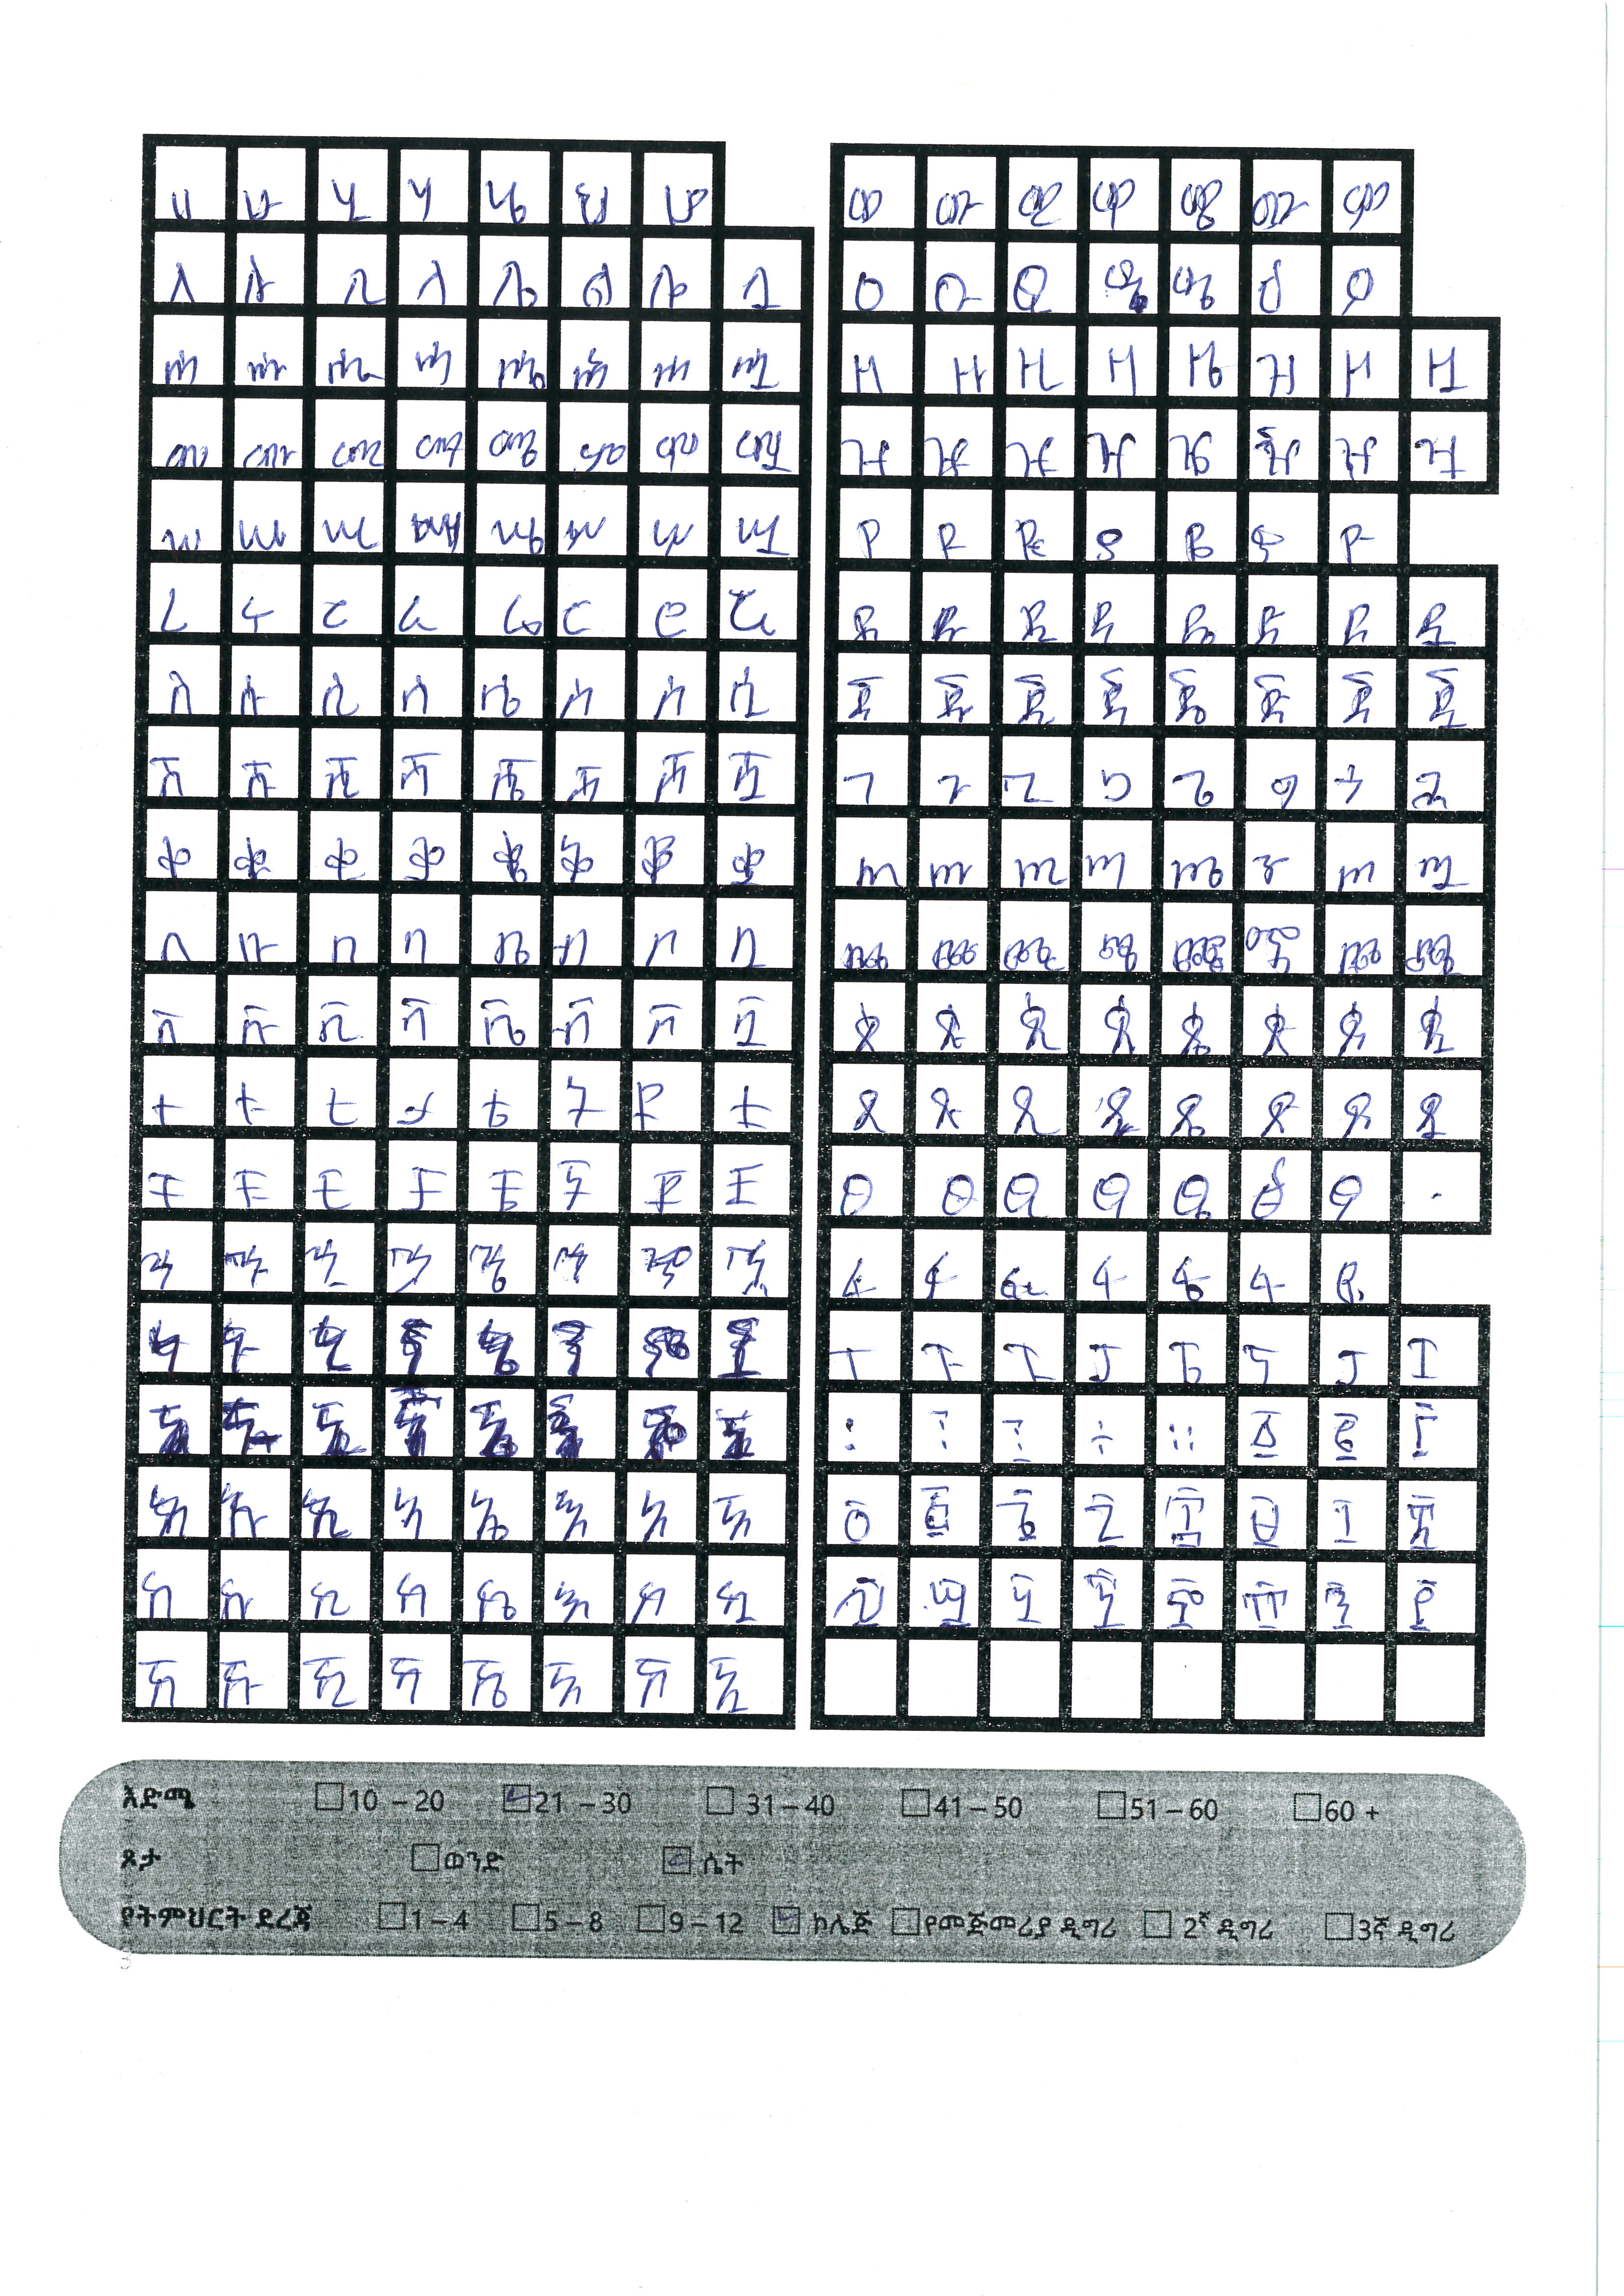 ሀ ሁ ሂ ሃ ሄ ህ ሆ
ለ ሉ ሊ ላ ሌ ል ሎ ሏ
ሐ ሑ ሒ ሓ ሔ ሕ ሖ ሗ
መ ሙ ሚ ማ ሜ ም ሞ ሟ
ሠ ሡ ሢ ሤ ሥ ሦ ሧ
ረ ሩ ሪ ራ ሬ ር ሮ ሯ
ሰ ሱ ሲ ሳ ሴ ስ ሶ ሷ
ሸ ሹ ሺ ሻ ሼ ሽ ሾ ሿ
ቀ ቁ ቂ ቃ ቄ ቅ ቆ ቋ
በ ቡ ቢ ባ ቤ ብ ቦ ቧ
ቨ ቩ ቪ ቫ ቬ ቭ ቮ ቯ
ተ ቱ ቲ ታ ቴ ት ቶ ቷ
ቸ ቹ ቺ ቻ ቼ ች ቾ ቿ
ኀ ኁ ኂ ኃ ኄ ኅ ኆ ኋ
ነ ኑ ኒ ና ኔ ን ኖ ኗ
ኘ ኙ ኚ ኛ ኜ ኝ ኞ ኟ
አ ኡ ኢ ኣ ኤ እ ኦ ኧ
ከ ኩ ኪ ካ ኬ ክ ኮ ኳ
ኸ ኹ ኺ ኻ ኼ ኽ ኾ ዃ
ወ ዉ ዊ ዋ ዌ ው ዎ
ዐ ዑ ዒ ዔ ዕ ዖ
ዘ ዙ ዚ ዛ ዜ ዝ ዞ ዟ
ዠ ዡ ዢ ዣ ዤ ዥ ዦ ዧ
የ ዩ ዪ ያ ዬ ይ ዮ
ደ ዱ ዲ ዳ ዴ ድ ዶ ዷ
ጀ ጁ ጂ ጃ ጄ ጅ ጆ ጇ
ገ ጉ ጊ ጋ ጌ ግ ጎ ጓ
ጠ ጡ ጢ ጣ ጤ ጥ ጦ ጧ
ጨ ጩ ጪ ጫ ጬ ጭ ጮ ጯ
ጰ ጱ ጲ ጳ ጴ ጵ ጶ ጷ
ጸ ጹ ጺ ጻ ጼ ጽ ጾ ጿ
ፀ ፁ ፂ ፃ ፄ ፅ ፆ
ፈ ፉ ፊ ፋ ፌ ፍ ፎ
ፐ ፑ ፒ ፓ ፔ ፕ ፖ ፗ
፡ ፣ ፤ ÷ ። ፩ ፪ ፫
፬ ፭ ፮ ፯ ፰ ፱ ፲ ፳
፴ ፵ ፶ ፷ ፸ ፹ ፺ ፻
እድሜ 10 – 20 21 – 30 31 – 40 41 – 50 51 – 60 60 +
ጾታ ወንድ ሴት
የትምህርት ደረጃ 1 – 4 5 – 8 9 – 12 ኮሌጅ የመጀመሪያ ዲግሪ 2ኛ ዲግሪ 3ኛ ዲግሪ